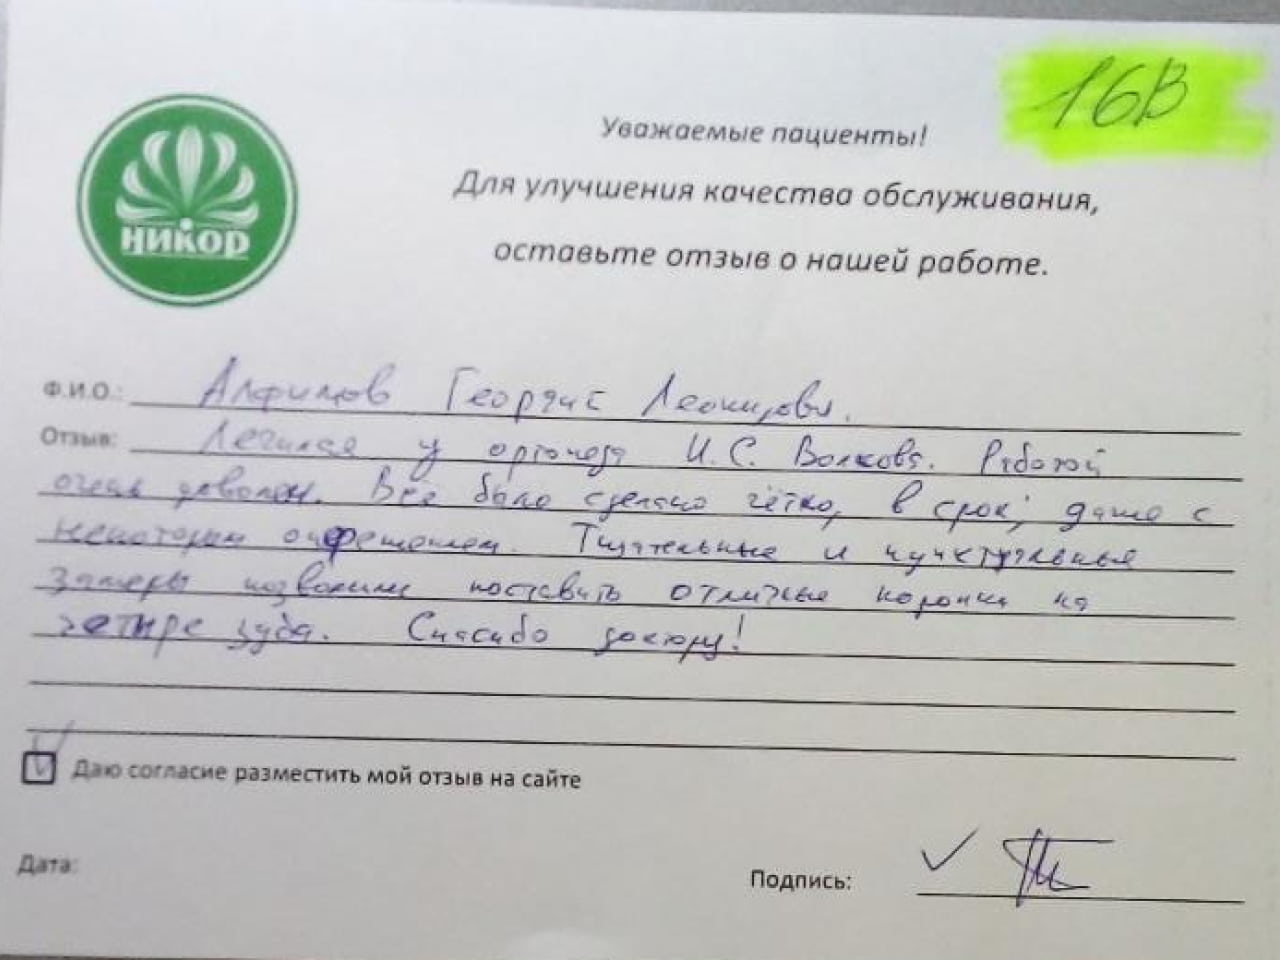 16В
Уважаемые пациенты!
Для улучшения качества обслуживания,
оставьте отзыв о нашей работе.
НИКОР
Ф.И.О.: Алфимов Георгий Леонидович.
Отзыв: Лечился у ортопеда И.С. Волкова. Работой
очень доволен. Всё было сделано чётко, в срок, даже с
некоторым опережением. Тщательные и пунктуальные
замеры позволили поставить отличные коронки на
четыре зуба. Спасибо доктору!
Даю согласие разместить мой отзыв на сайте
Дата:
Подпись: